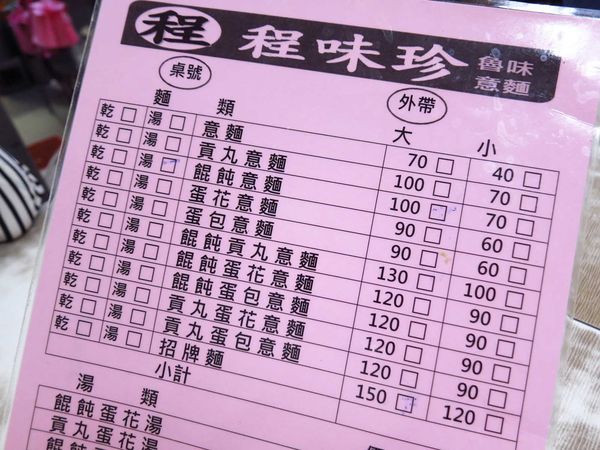 程 程味珍 魯味
意麵
桌號 外帶
麵 類 大 小
乾□ 湯□ 意麵 70□ 40□
乾□ 湯□ 貢丸意麵 100□ 70□
乾□ 湯□ 餛飩意麵 100□ 70□
乾□ 湯□ 蛋花意麵 90□ 60□
乾□ 湯□ 蛋包意麵 90□ 60□
乾□ 湯□ 餛飩貢丸意麵 130□ 100□
乾□ 湯□ 餛飩蛋花意麵 120□ 90□
乾□ 湯□ 餛飩蛋包意麵 120□ 90□
乾□ 湯□ 貢丸蛋花意麵 120□ 90□
乾□ 湯□ 貢丸蛋包意麵 120□ 90□
乾□ 湯□ 招牌麵 150□ 120□
小計
湯 類
餛飩蛋花湯
貢丸蛋花湯